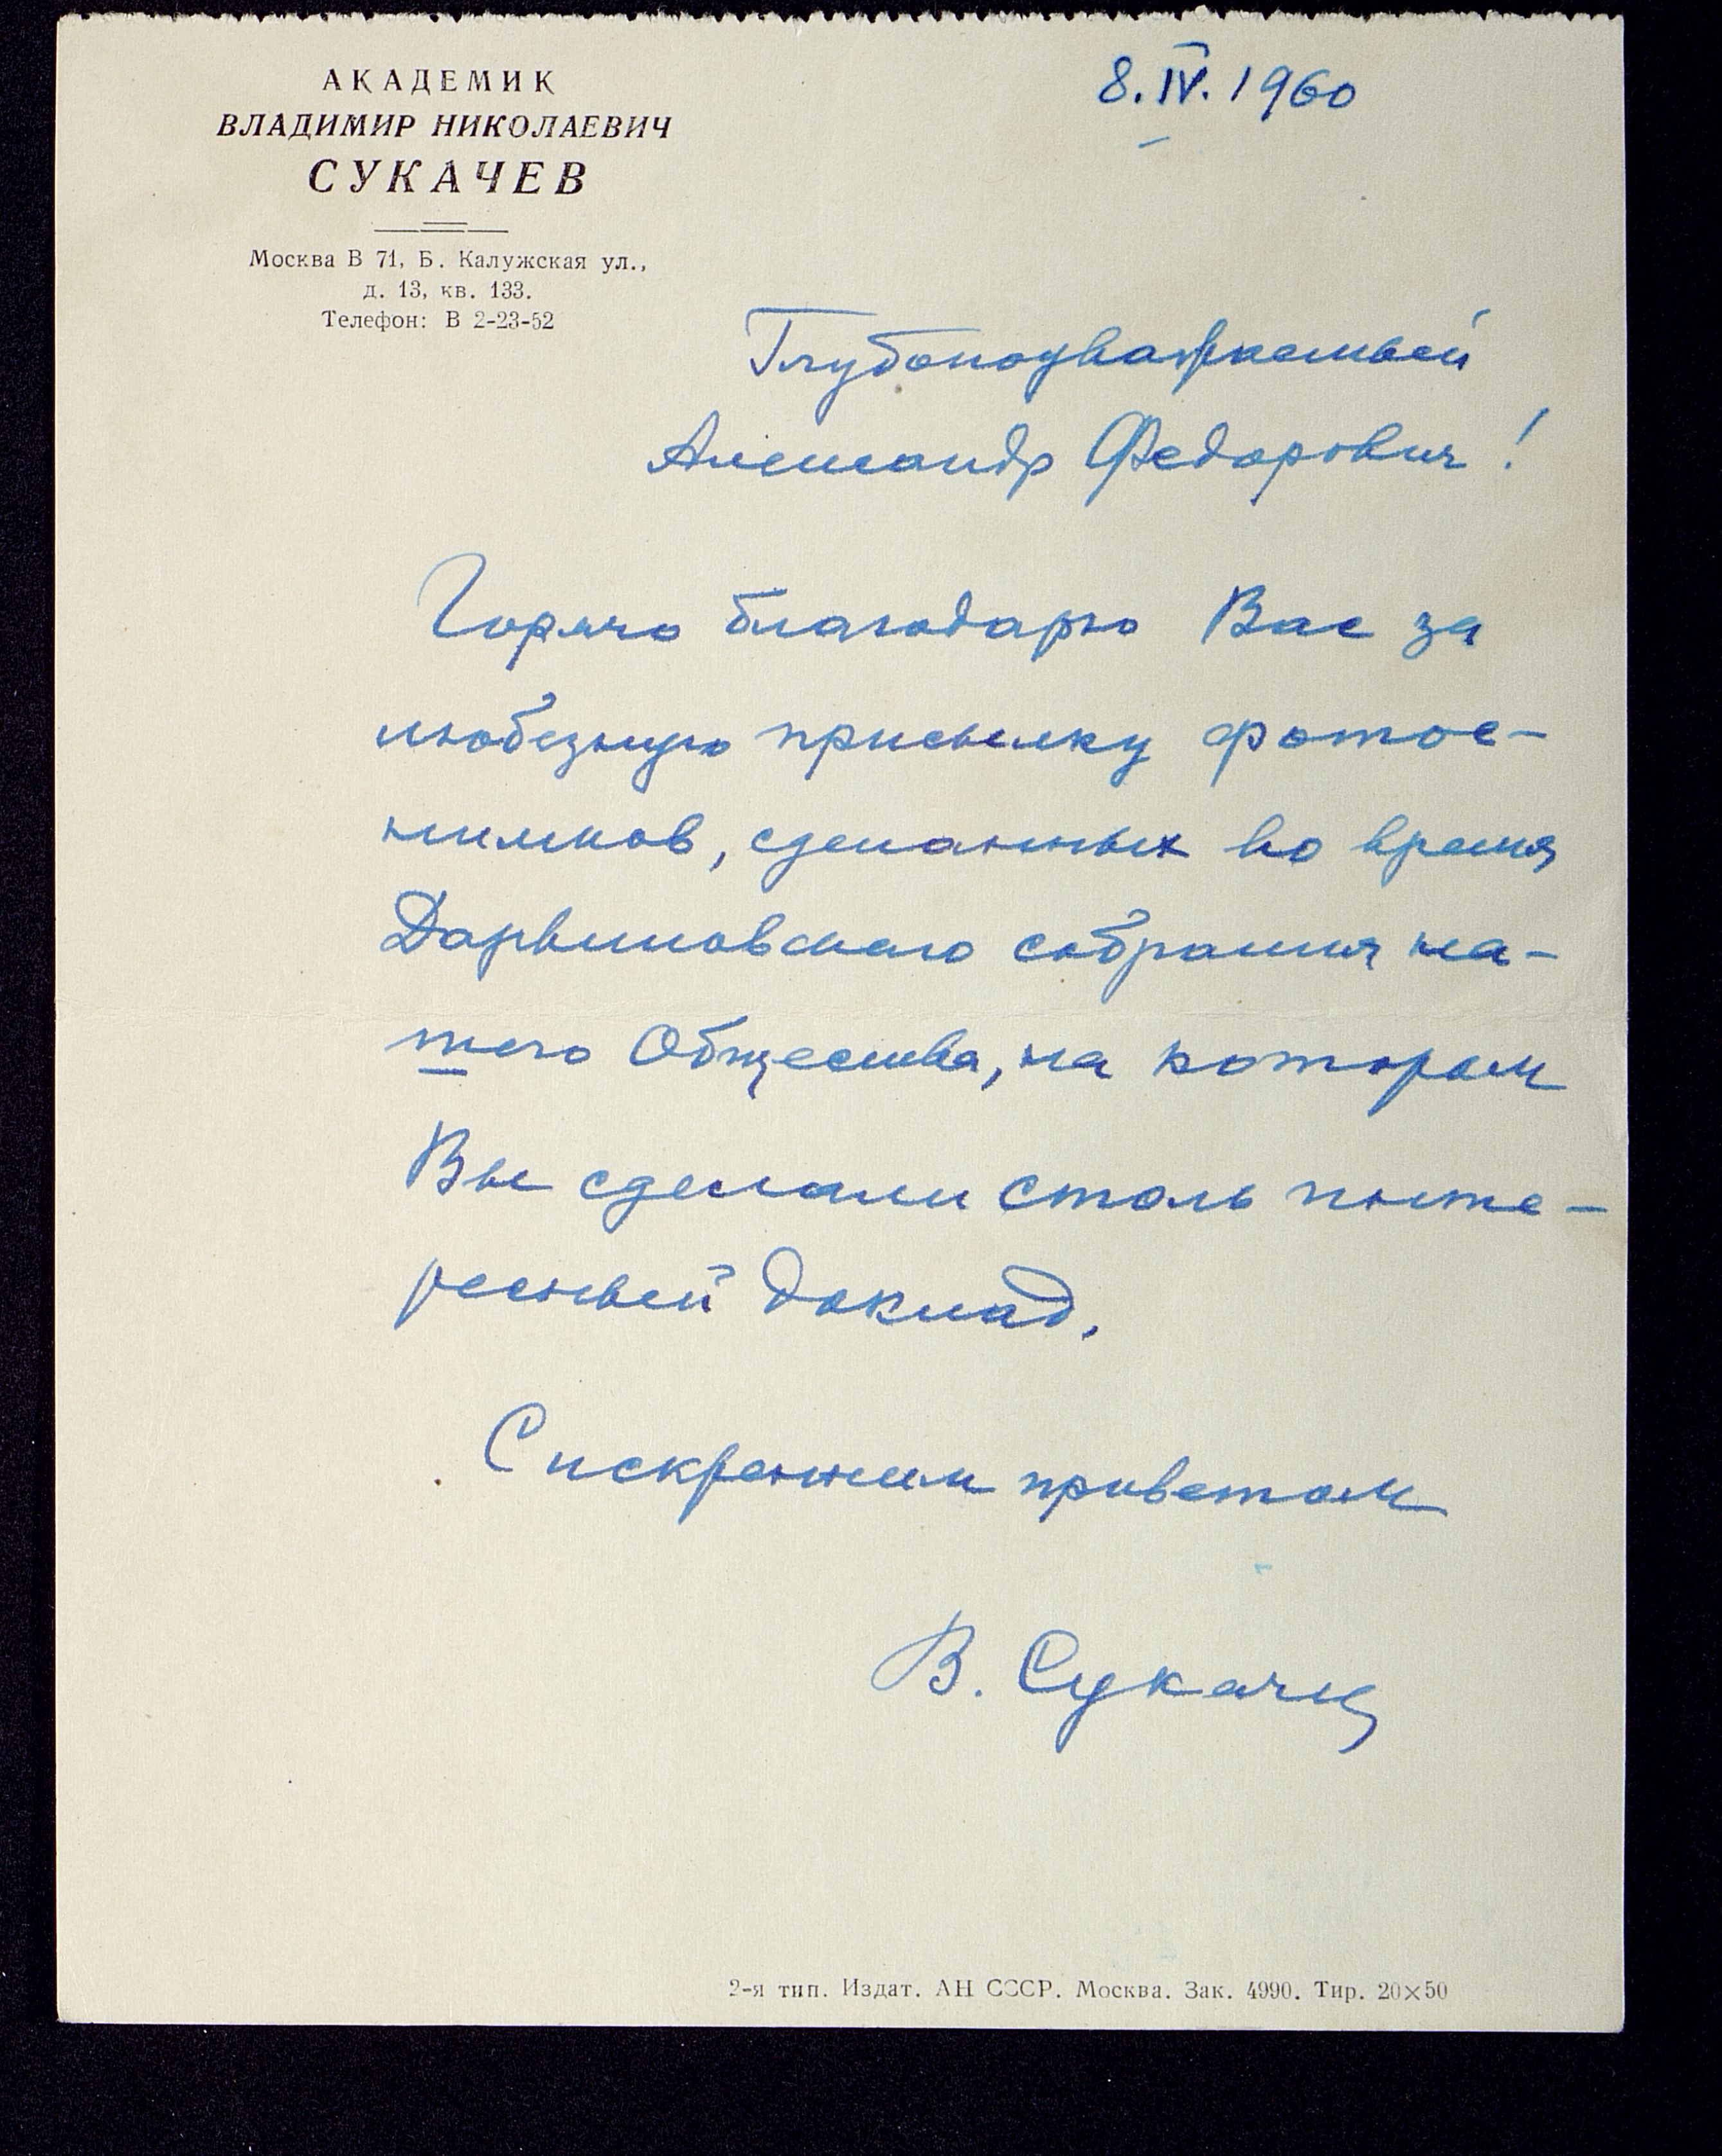 АКАДЕМИК
ВЛАДИМИР НИКОЛАЕВИЧ
СУКАЧЕВ
Москва В 71, Б. Калужская ул.,
д. 13, кв. 133.
Телефон: В 2-23-52
8. IV. 1960
Глубокоуважаемый
Александр Федорович!
Горячо благодарю Вас за
любезную присылку фотос-
нимков, сделанных во время
Дарвиновского собрания на-
шего Общества, на котором
Вы сделали столь инте-
ресный доклад.
С искренним приветом
В. Сукачев
2-я тип. Издат. АН СССР. Москва. Зак. 4990. Тир. 20×50